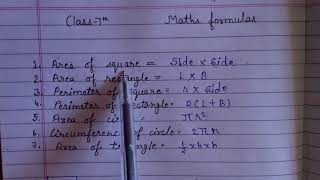 Class-7th Maths formulas
1. Area of square = Side x Side
2. Area of rectangle = L x B
3. Perimeter of square = 4 x side
4. Perimeter of rectangle = 2(L+B)
5. Area of circle = πr²
6. Circumference of circle = 2πr
7. Area of triangle = ½ x b x h